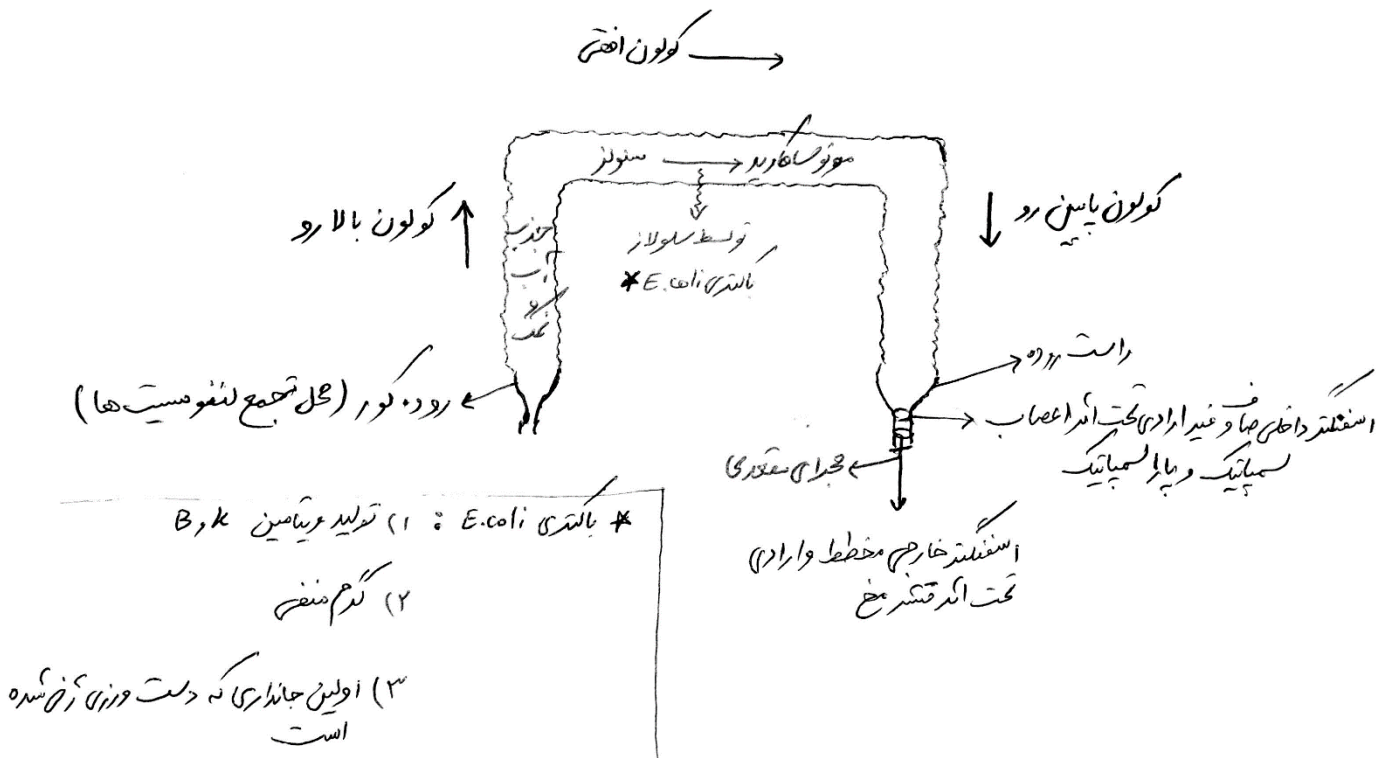 کولون افقی
سلولز
مونوساکارید
توسط سلولاز
باکتری E.coli *
کولون بالا رو
جذب
آب
و
نمک
کولون پایین رو
روده کور (محل تجمع لنفوسیت ها)
راست روده
اسفنکتر داخلی صاف و غیر ارادی تحت اثر اعصاب
سمپاتیک و پاراسمپاتیک
مجرای مقعدی
اسفنکتر خارجی مخطط و ارادی
تحت اثر قشر مخ
* باکتری E.coli : ۱) تولید ویتامین B,K
۲) گرم منفی
۳) اولین جانداری که دست ورزی ژنی شده
است